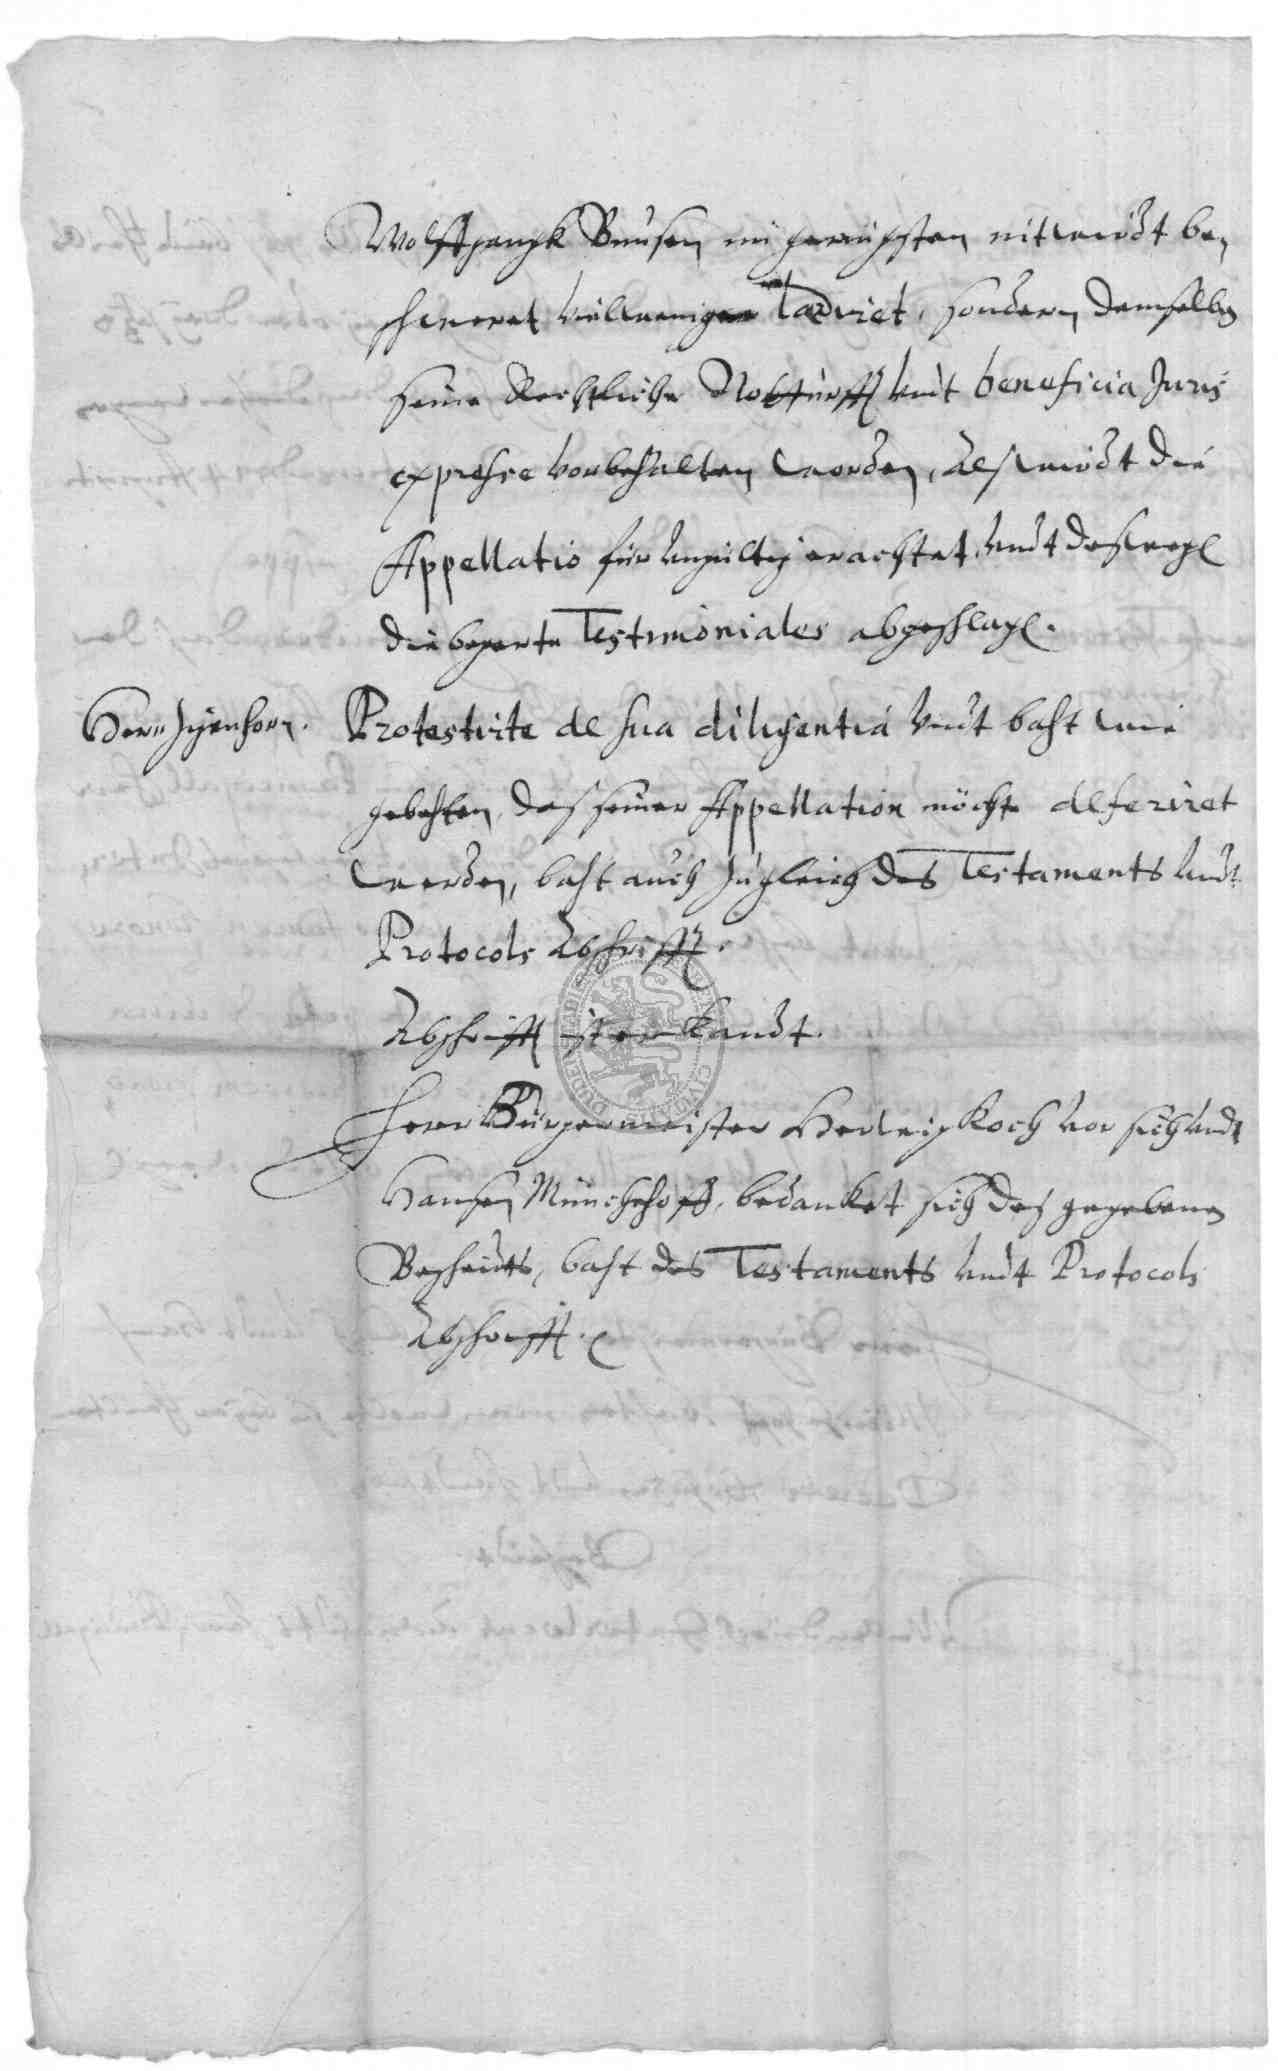 Wolffgangk Bunsen im geringsten nit wirdt be-
schweret vielweniger radiciret, sondern demselben
seine Rechtliche Notturfft undt beneficia Juris
expresse vorbehalten worden, Als wirdt die
Appellatio für ungültig erachtet, undt deswegen
die begerte Testimoniales abgeschlagen.
Protestirte de sua diligentia undt baht wie
gebehten, das seiner Appellation möchte deferiret
werden, baht auch zugleich des Testaments undt
Protocols Abschrifft.
Abschrifft ist erkandt.
Herr Bürgermeister Hertwig Koch vor sich undt
Hansen Münchehoff, bedanket sich des gegebenen
Bescheidts, baht des Testaments undt Protocols
Abschrifft.